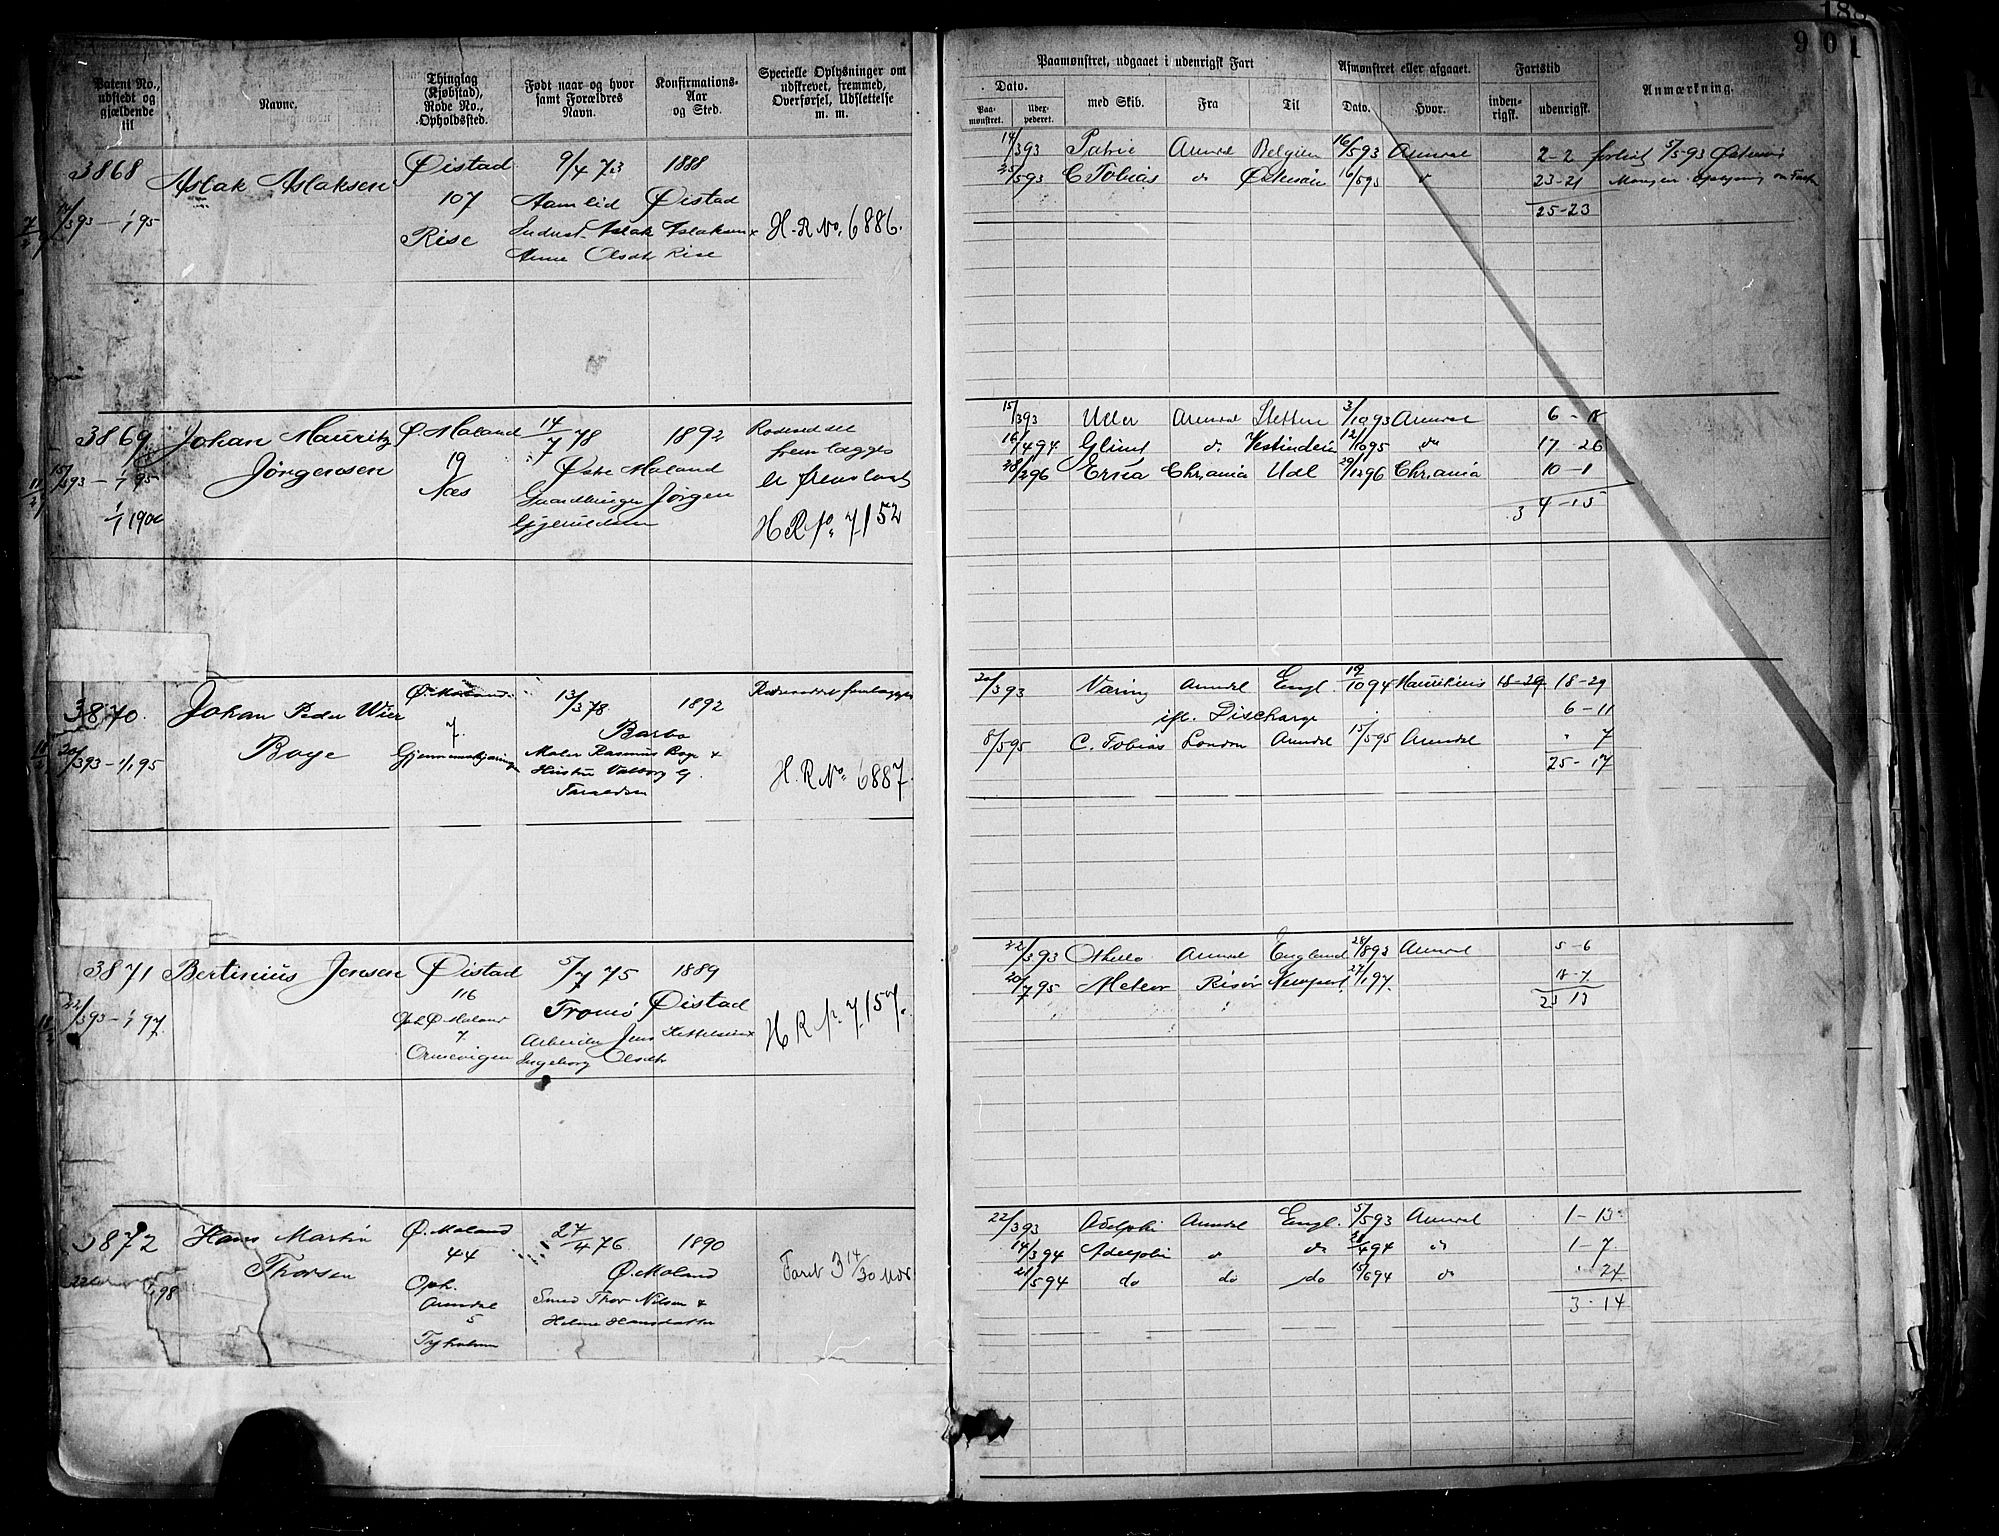 188
901
Patent No., udstedt og gjældende til
Navne.
Thinglag (Kjøbstad), Rode No., Opholdssted.
Født naar og hvor samt Forældres Navn.
Konfirmations-Aar og Sted.
Specielle Oplysninger om udskrevet, fremmed, Overførsel, Udslettelse m. m.
Paamønstret, udgaaet i udenrigsk Fart
Dato.
Paamønstret.
Udexpederet.
med Skib.
Fra
Til
Afmønstret eller afgaaet.
Dato.
Hvor.
Fartstid
indenrigsk.
udenrigsk.
Anmærkning.
3868 Aslak Aslaksen Øistad 9/4 73 1888
14/393 – 1/1 95 107 Aamlid Øistad
Rise Indust. Aslak Aslaksen + H. R No. 6886.
Anne Olsdtr Rise
14/393 Patrie Arendal Belgien 16/593 Arendal 2-2
25/593 C Tobias do Østersøen 16/595 do 23-21
25-23
3869 Johan Mauritz Ø. Moland 14/7 78 1892 Rodeseddel
15/393 – 1/1 95 Jörgensen 19 Østre Moland fremlægges
Næs Gaardbruger Jörgen
1/1 1900 H R No. 7152
15/393 Uller Arendal Stettin 3/1093 Arendal 6-18
16/494 Glimt do Vestindien 12/1095 do 17-26
28/296 Erica Chr.ania Udl 29/1296 Chr.ania 10-1
3 4-15
3870. Johan Peder Wier Ø. Moland. 13/378 1892 Rodeseddel fremlægges
20/393 – 1/1 95 Boye 7. Barbo
Maler Rasmus Boye +
Hustru Valborg G. H. R No. 6887.
20/393 Væring Arendal Engl. 19/1094 Mauritius 18-29 18-29
ifl. Discharge 6-11
8/595 C. Tobias London Arendal 15/595 Arendal " 7
25-17
3871 Bertinius Jensen Øistad 5/7 75 1889
22/393 – 1/1 97. 116 Tromö Øistad H R No. 7157.
Oph Ø Moland Arbeider Jens
7. Ingeborg Olsdtr
Ormevigen
22/393 Othello Arendal England 28/893 Arendal 5-6
20/795 Meteor Risør Newport 27/197. 18-7
23 13
3872 Hans Martin Ø. Moland 27/4 76 1890
Thorsen 44 Ø. Moland
Oph. Smed Thor Nilsen +
98 Arendal Helene Hansdatter
5
Tyholmen
22/393 Adelphi Arendal Engl. 5/593 Arendal 1-13
14/394 Adelphi do do 21/494 do 1-7
21/594 do do do 15/694 do " 24
3-14